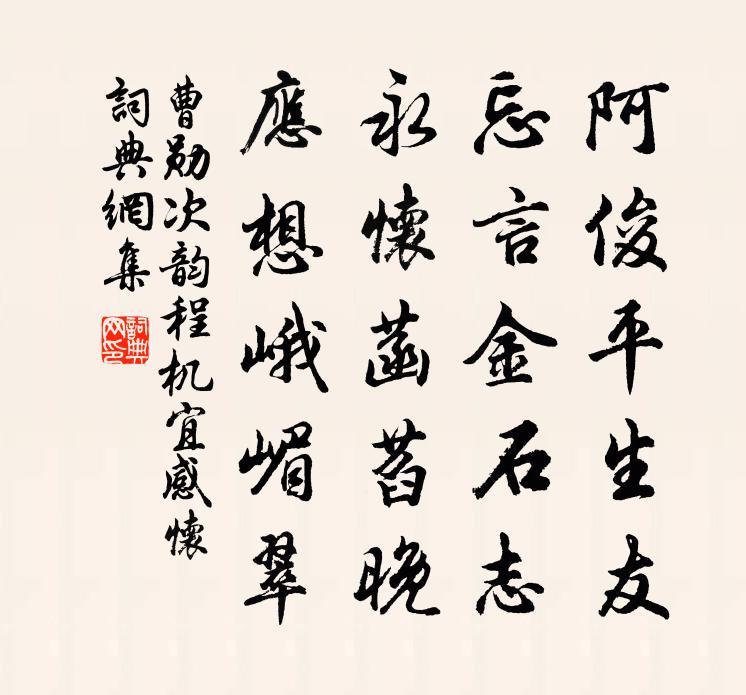 阿俊平生友
忘言金石志
永懷菡萏晚
應想峨嵋翠
曹勛次韵程机宜感懷
詞典網集
詞典网印